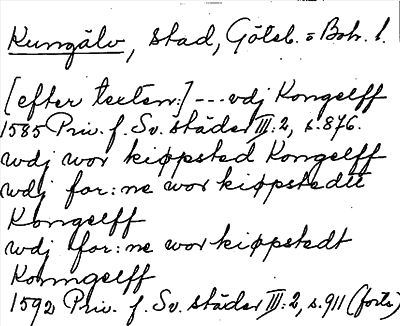 Kungälv, stad, Göteb. o Boh. l.
[efter texten:] --- vdj Kongelff
1585 Priv. f. Sv. städer III:2, s. 876.
wdj wor kiøpsted Kongelff
wdj for:ne wor kiøpstedtt
Kongelff
wdj for:ne wor kiøpstedt
Konngelff
1592 Priv. f. Sv. städer III:2, s. 911 (forts)